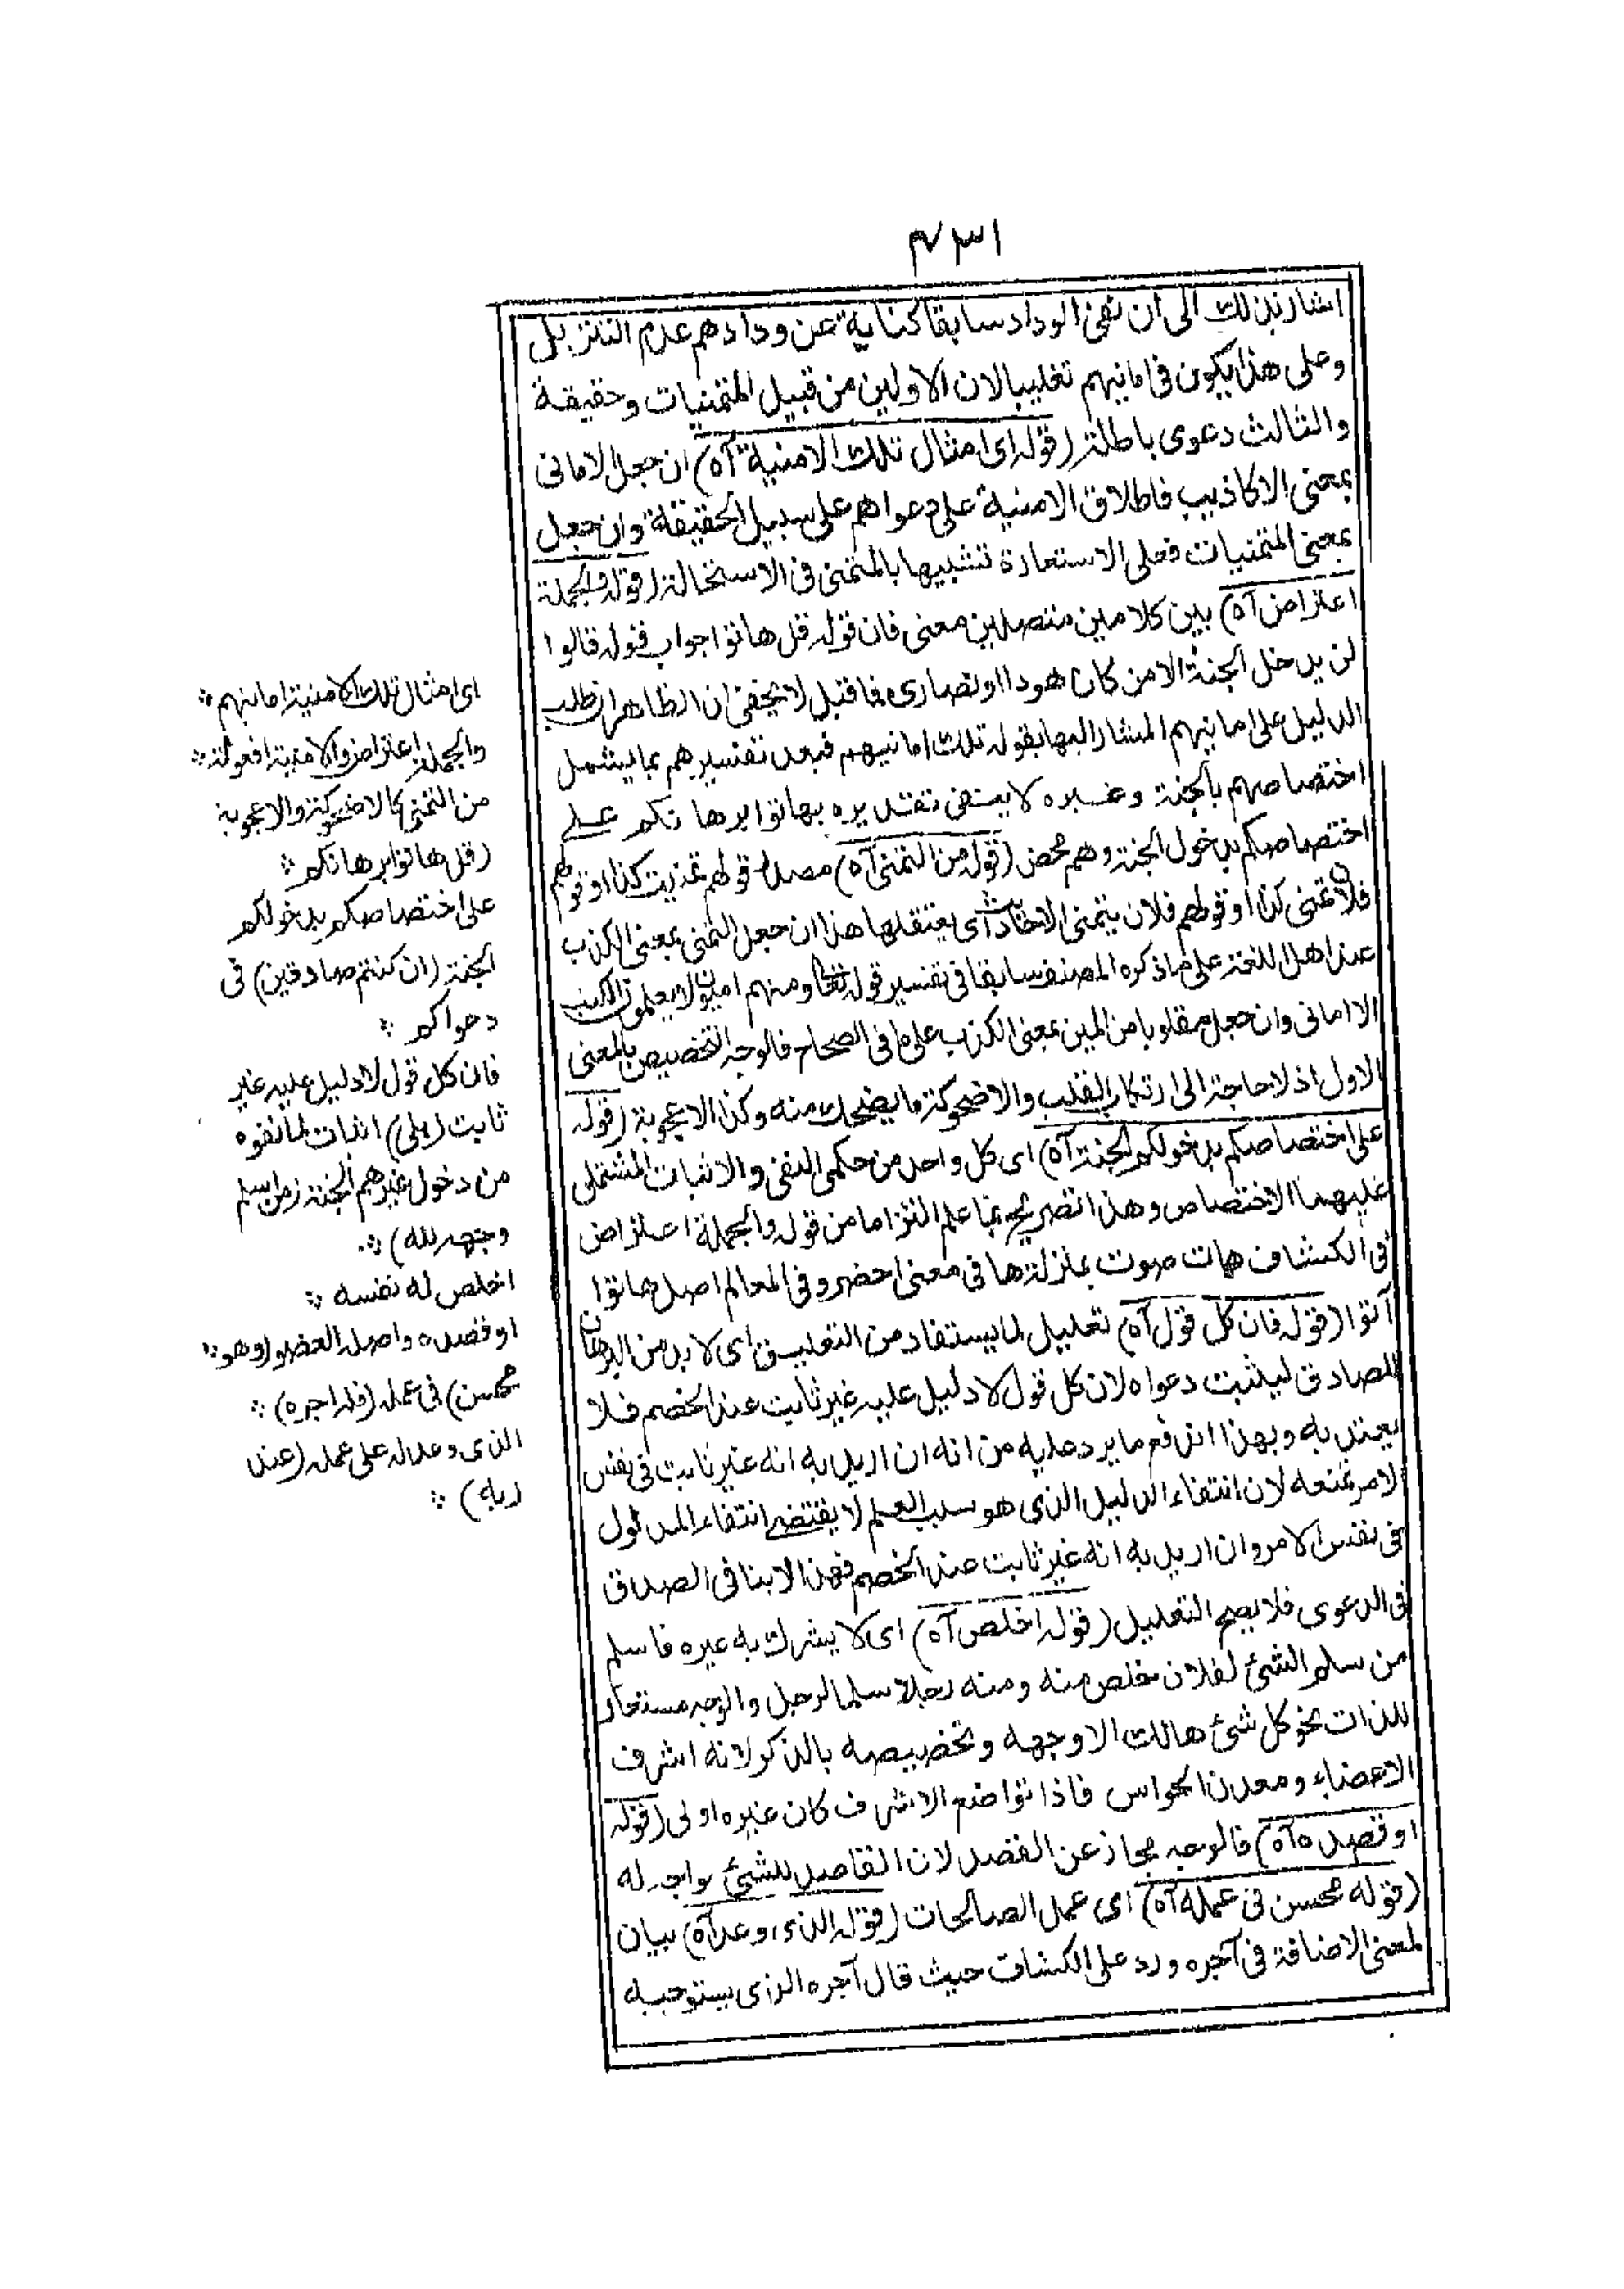 ٤٣١
اشار بذلك الى ان نفى الوداد سابقا كناية عن ودادهم عدم التنزيل
وعلى هذا يكون فى امانيهم تغليبا لان الاولين من قبيل المتمنيات وحقيقة
والثالث دعوى باطلة (قوله اى امثال تلك الامنية آه) ان جعل الامانى
بمعنى الاكاذيب فاطلاق الامنية على دعواهم على سبيل الحقيقة وان جعل
بمعنى المتمنيات فعلى الاستعارة تشبيها بالمتمنى فى الاستحالة (قوله والجملة
اعتراض آه) بين كلامين متصلين معنى فان قوله قل هاتوا جواب قوله قالوا
لن يدخل الجنة الا من كان هودا او نصارى فما قيل لا يخفى ان الظاهر ان طلب
الدليل على امانيهم المشار اليها بقوله تلك امانيهم فبعد تفسيرهم بما يشمل
اختصاصهم بالجنة وغيره لا ينبغى تقديره بهاتوا برهانكم على
اختصاصكم بدخول الجنة وهم محض (قوله من التمنى آه) مصدر قولهم تمنيت كذا او قولهم
فلان تمنى كذا او قولهم فلان يتمنى الاحاديث اى يفتعلها هذا ان جعل التمنى بمعنى الكذب
عند اهل اللغة على ما ذكره المصنف سابقا فى تفسير قوله تعالى ومنهم اميون لا يعلمون الكتاب
الا امانى وان جعل مقلوبا من المين بمعنى الكذب على ما فى الصحاح فالوجه التخصيص بالمعنى
الاول اذ لا حاجة الى ارتكاب القلب والاضحوكة ما يضحك منه وكذا الاعجوبة (قوله
على اختصاصكم بدخولكم الجنة آه) اى كل واحد من حكمى النفى والاثبات المشتملى
عليهما الاختصاص وهذا تصريح بما علم التزاما من قوله والجملة اعتراض
فى الكشاف هات صوت بمنزلة ها فى معنى احضر وفى المعالم اصل هاتوا
آتوا (قوله فان كل قول آه) تعليل لما يستفاد من التعليق اى لا بد من البرهان
للصادق ليثبت دعواه لان كل قول لا دليل عليه غير ثابت عند الخصم فلا
يعتد به وبهذا اندفع ما يرد عليه من انه ان اريد به انه غير ثابت فى نفس
الامر نمنعه لان انتفاء الدليل الذى هو سبب العلم لا يقتضى انتفاء المدلول
فى نفس الامر وان اريد به انه غير ثابت عند الخصم فهذا لا ينافى الصدق
فى الدعوى فلا يصح التعليل (قوله اخلص آه) اى لا يشرك به غيره فاسلم
من سلم الشئ لفلان خلص منه ومنه رجلا سلما لرجل والوجه مستعار
للذات نحو كل شئ هالك الا وجهه وتخصيصه بالذكر لانه اشرف
الاعضاء ومعدن الحواس فاذا تواضع الاشرف كان غيره اولى (قوله
او قصده آه) فالوجه مجاز عن القصد لان القاصد للشئ يواجه له
(قوله محسن فى عمله آه) اى عمل الصالحات (قوله الذى وعد آه) بيان
لمعنى الاضافة فى اجره ورد على الكشاف حيث قال اجره الذى يستوجبه
اى امثال تلك الامنية امانيهم ؞
والجملة اعتراض والامنية افعولة ؞
من التمنى كالاضحوكة والاعجوبة
(قل هاتوا برهانكم ؞
على اختصاصكم بدخولكم
الجنة (ان كنتم صادقين) فى
دعواكم ؞
فان كل قول لا دليل عليه غير
ثابت (بلى) اثبات لما نفوه
من دخول غيرهم الجنة (من اسلم
وجهه لله) ؞
اخلص له نفسه ؞
او قصده واصله العضو (وهو ؞
محسن) فى عمله (فله اجره) ؞
الذى وعد له على عمله (عند
ربه) ؞